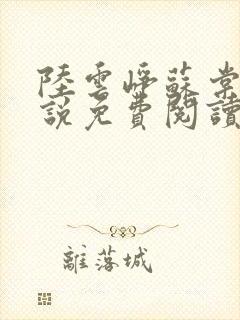 陸雲崢蘇棠
說免費閱讀
離落城